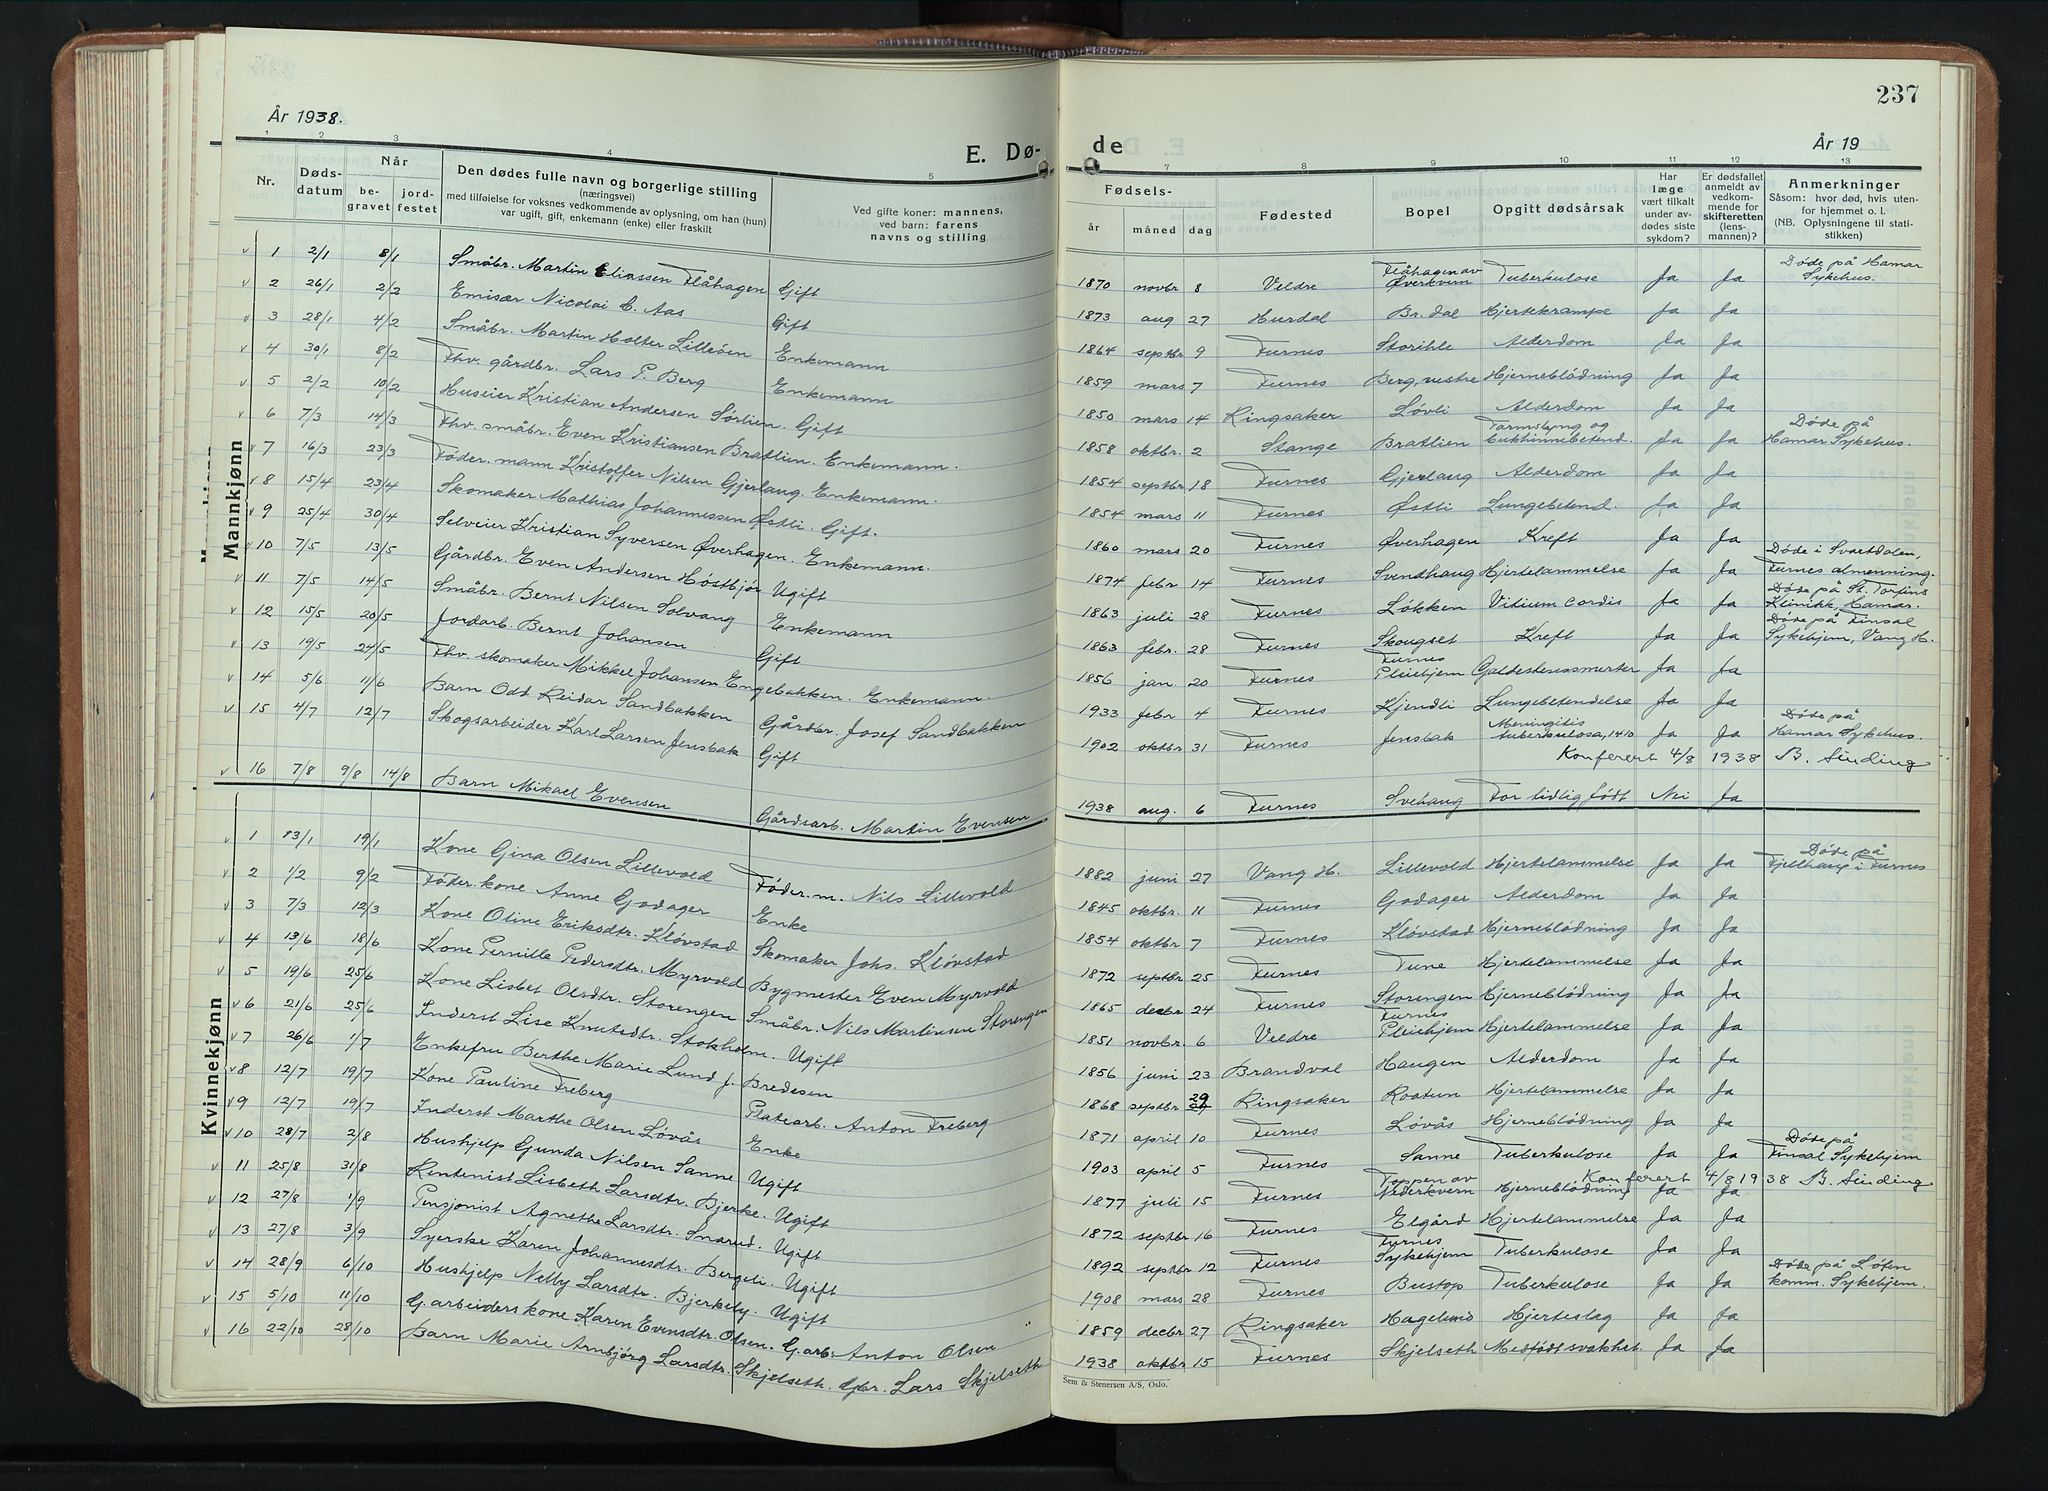 237
År 1938.
År 19
E. Dø-
de
1 2 3 4 5 7 8 9 10 11 12 13
Nr. Døds-datum Når be-gravet jord-festet Den dødes fulle navn og borgerlige stilling (næringsvei) med tilføielse for voksnes vedkommende av oplysning, om han (hun) var ugift, gift, enkemann (enke) eller fraskilt Ved gifte koner: mannens, ved barn: farens navns og stilling Fødsels- år måned dag Fødested Bopel Opgitt dødsårsak Har læge vært tilkalt under av-dødes siste sykdom? Er dødsfallet anmeldt av vedkom-mende for skifteretten (lens-mannen)? Anmerkninger Såsom: hvor død, hvis uten-for hjemmet o. l. (NB. Oplysningene til stati-stikken)
Mannkjønn
1 2/1 8/1 Småbr. Martin Eliassen Flåhagen Gift 1870 novbr 8 Veldre Flåhagen av Øverkvern Tuberkulose Ja Ja Døde på Hamar Sykehus.
2 26/1 2/2 Emisær Nicolai C. Aas Gift 1873 aug 27 Hurdal Br.dal Hjertekrampe Ja Ja
3 28/1 4/2 Småbr. Martin Holter Lilleøen Enkemann 1864 septbr 9 Furnes Storihle Alderdom Ja Ja
4 30/1 8/2 Fhv. gårdbr. Lars P. Berg Enkemann 1859 mars 7 Furnes Berg, vestre Hjerneblødning Ja Ja
5 2/2 10/2 Huseier Kristian Andersen Sørlien. Gift 1850 mars 14 Ringsaker Løvli Alderdom Ja Ja
6 7/3 14/3 Fhv. småbr. Even Kristiansen Bratlien. Enkemann. 1858 oktbr. 2 Stange Bratlien Tarmslyng og Bukhinnebetend. Ja Ja Døde på Hamar Sykehus.
7 16/3 23/3 Føder. mann Kristoffer Nilsen Gjerlaug. Enkemann. 1854 septbr 18 Furnes Gjerlaug Alderdom Ja Ja
8 15/4 23/4 Skomaker Mathias Johannessen Østli. Gift. 1854 mars 11 Furnes Østli Lungebetend. Ja Ja
9 25/4 30/4 Selveier Kristian Syversen Øverhagen. Enkemann. 1860 mars 20 Furnes Øverhagen Kreft Ja Ja
10 7/5 13/5 Gårdbr. Even Andersen Høstbjør Ugift 1874 febr 14 Furnes Svendhaug Hjertelammelse Ja Ja Døde i Svartdalen, Furnes almenning.
11 7/5 14/5 Småbr. Bernt Nilsen Solvang Enkemann 1863 juli 28 Furnes Løkken Vitium cordis Ja Ja Døde på St. Torfins Klinikk, Hamar.
12 15/5 20/5 Jordarb. Bernt Johansen Gift 1863 febr. 28 Furnes Skougset Kreft Ja Ja Døde på Finsal Sykehjem, Vang H.
13 19/5 24/5 Fhv. skomaker Mikkel Johansen Engebakken. Enkemann. 1856 jan 20 Furnes Furnes Pleiehjem Galdestenssmerter Ja Ja
14 5/6 11/6 Barn Odt Reidar Sandbakken Gårdbr. Josef Sandbakken 1933 febr 4 Furnes Kjendli Lungebetendelse Ja Ja
15 4/7 12/7 Skogsarbeider Karl Larsen Jensbak Gift 1902 oktbr 31 Furnes Jensbak Meningitis tuberkulosa, 1410 Ja Ja Døde på Hamar Sykehus.
Konferert 4/8 1938 B. Sinding
16 7/8 9/8 14/8 Barn Mikael Evensen Gårdsarb. Martin Evensen 1938 aug. 6 Furnes Svehaug For tidlig født Nei Ja
Kvinnekjønn
1 13/1 19/1 Kone Gina Olsen Lillevold Føder.m. Nils Lillevold 1882 juni 27 Vang H. Lillevold Hjertelammelse Ja Ja Døde på Fjellhaug i Furnes
2 1/2 9/2 Føder.kone Anne Godager Enke 1845 oktbr. 11 Furnes Godager Alderdom Ja Ja
3 7/3 12/3 Kone Oline Eriksdtr. Kløvstad Skomaker Johs. Kløvstad 1854 oktbr 7 Furnes Kløvstad Hjerneblødning Ja Ja
4 13/6 18/6 Kone Pernille Pedersdtr. Myrvold Bygmester Even Myrvold 1872 septbr 25 Furnes Tune Hjertelammelse Ja Ja
5 19/6 25/6 Kone Lisbet Olsdtr. Storengen Småbr. Nils Martinsen Storengen 1865 decbr 24 Furnes Storengen Hjerneblødning Ja Ja
6 21/6 25/6 Inderst Lise Knutsdtr. Stokholm. Ugift 1851 novbr. 6 Veldre Furnes Pleiehjem Hjertelammelse Ja Ja
7 26/6 1/7 Enkefru Berthe Marie Lund f. Bredesen 1856 juni 23 Brandval Haugen Alderdom Ja Ja
8 12/7 19/7 Kone Pauline Freberg Platearb. Anton Freberg 1868 septbr 29 Ringsaker Roatun Hjertelammelse Ja Ja
9 12/7 19/7 Inderst Marthe Olsen Løvås Enke 1871 april 10 Furnes Løvås Hjerneblødning Ja Ja
10 28/7 2/8 Hushjelp Gunda Nilsen Sanne Ugift 1903 april 5 Furnes Sanne Tuberkulose Ja Ja Døde på Finsal Sykehjem
Konferert 4/8 1938 B. Sinding
11 25/8 31/8 Rentenist Lisbeth Larsdtr. Bjerke. Ugift 1877 juli 15 Furnes Toppen av Nederkvern Hjerneblødning Ja Ja
12 27/8 1/9 Pensjonist Agnethe Larsdtr. Snarud. Ugift 1872 septbr 16 Furnes Elgård Hjertelammelse Ja Ja
13 27/8 3/9 Syerske Karen Johannesdtr. Bergeli. Ugift 1892 septbr 12 Furnes Furnes Sykehjem Tuberkulose Ja Ja
14 28/9 6/10 Hushjelp Nelly Larsdtr. Bjerkely. Ugift 1908 mars 28 Furnes Bustop Tuberkulose Ja Ja Døde på Løten komm. Sykehjem.
15 5/10 11/10 G.arbeiders kone Karen Evensdtr. Olsen. G.arb. Anton Olsen 1859 decbr 27 Ringsaker Hagelund Hjerteslag Ja Ja
16 22/10 28/10 Barn Marie Arnbjørg Larsdtr. Skjelseth. Gbr. Lars Skjelseth 1938 oktbr 15 Furnes Skjelseth Medfødt svakhet. Ja Ja
Sem & Stenersen A/S, Oslo.